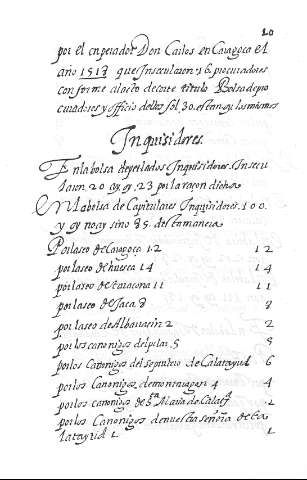 20
por el enperador Don Carlos en Caragoça el
año 1517 que Inseculasen 16 procuradores
conforme al acto de corte titulo Bolsa de pro
curadores y officio dellos sol. 30. estan oy los mismos
Inquisidores.
En la bolsa de perlados Inquisidores. Insecu
laun. 20 ay oy. 23 por la raçon dicha
En la bolsa de Capitulares Inquisidores. 100.
y oy no ay sino 85. desta manera
Por la seo de Caragoça 12 12
por la seo de huesca 14 14
por la seo de taracona 11 11
por la seo de Jaca 8 8
por la seo de Albarracin 2 2
por los canonigos del pilar. 5 8
por los Canonigos del sepulcro de Calatayud 6
por los Canonigos de montaragon 4 4
por los canonigos de S.ta Maria de Calat.d 2
por los Canonigos de nuestra señora de Ca
latayud 1 1